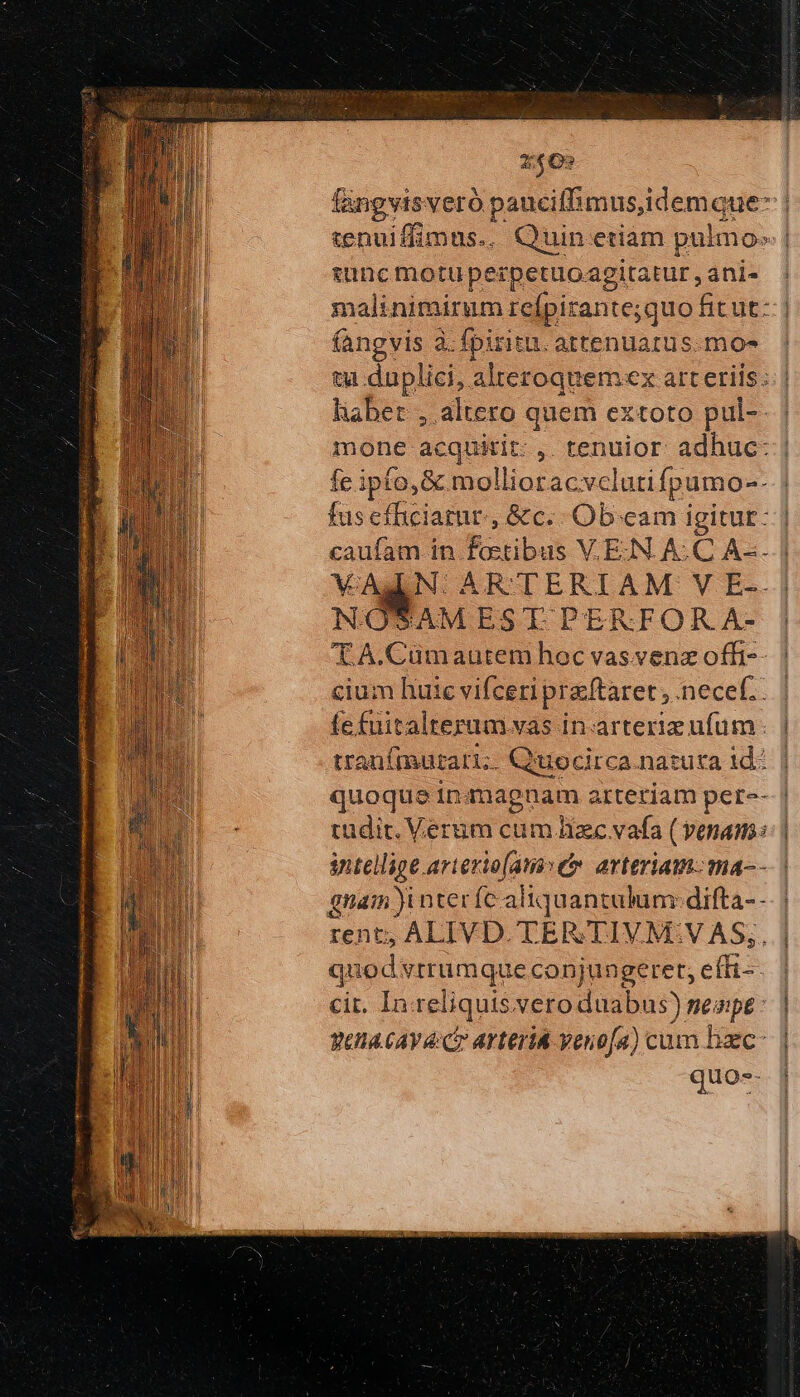 150
ſangvis verò pauciſſimus, idemque
tenuiſſimus. Quin etiam pulmo
tunc motu perpetuo agitatur, ani-
mali nimirum reſpirante; quo fit ut
ſangvis à ſpiritu attenuatus mo-
tu duplici, altero quem ex arteriis
habet, altero quem ex toto pul-
mone acquirit, tenuior adhuc
ſe ipſo, & mollior ac veluti ſpumo-
ſus efficiatur, &c. Ob eam igitur
cauſam in fœtibus VENA CA-
VA IN ARTERIAM VE-
NOSAM EST PERFORA-
TA. Cùm autem hoc vas venæ offi-
cium huic viſceri præſtaret, neceſ-
ſe fuit alterum vas in arteriæ uſum
tranſmutari. Quocirca natura id
quoque in magnam arteriam per-
tudit. Verum cum hæc vaſa (venam
intellige arterioſam & arteriam ma-
gnam) inter ſe aliquantulum diſta-
rent, ALIVD TERTIVM VAS,
quod vtrumque conjungeret, effi-
cit. In reliquis vero duabus) nempe
vena cava & arteria venoſa) cum hæc
quo-